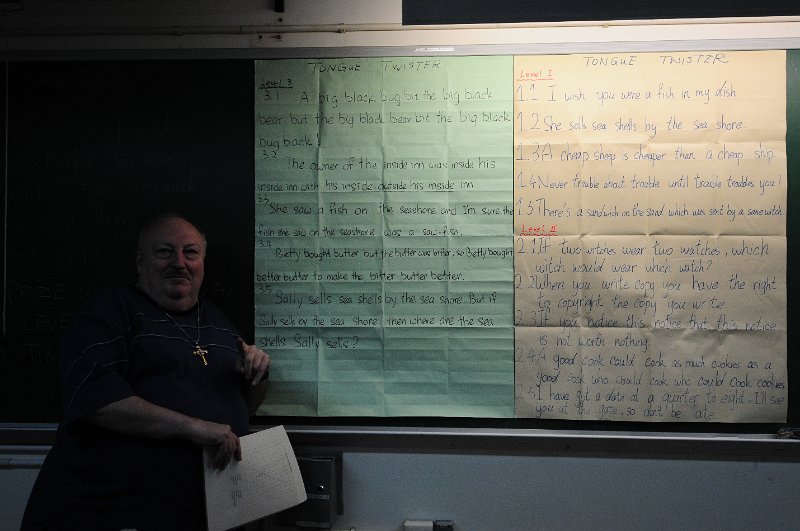 TONGUE TWISTER
Level 3
3.1 A big black bug bit the big black
bear, but the big black bear bit the big black
bug back!
3.2 The owner of the inside inn was inside his
inside inn with his inside outside his inside inn
3.3 She saw a fish on the seashore and I'm sure the
fish she saw on the seashore was a saw-fish.
3.4 Betty bought butter but the butter was bitter, so Betty bought
better butter to make the bitter butter better.
3.5 Sally sells sea shells by the sea shore. But if
Sally sells by the sea shore then where are the sea
shells Sally sells?
TONGUE TWISTER
Level 1
1.1 I wish you were a fish in my dish
1.2 She sells sea shells by the sea shore.
1.3 A cheap sheep is cheaper than a cheap ship.
1.4 Never trouble about trouble until trouble troubles you!
1.5 There's a sandwich on the sand which was sent by a sane witch
Level
2.1 If two witches wear two watches, which
witch would wear which watch?
2.2 When you write copy you have the right
to copyright the copy you write.
2.3 If you notice this notice that this notice
is not worth nothing.
2.4 A good cook could cook as much cookies as a
good cook who could cook who could cook cookies
2.5 I have got a date at a quarter to eight, I'll see
you at the gate, so don't be late